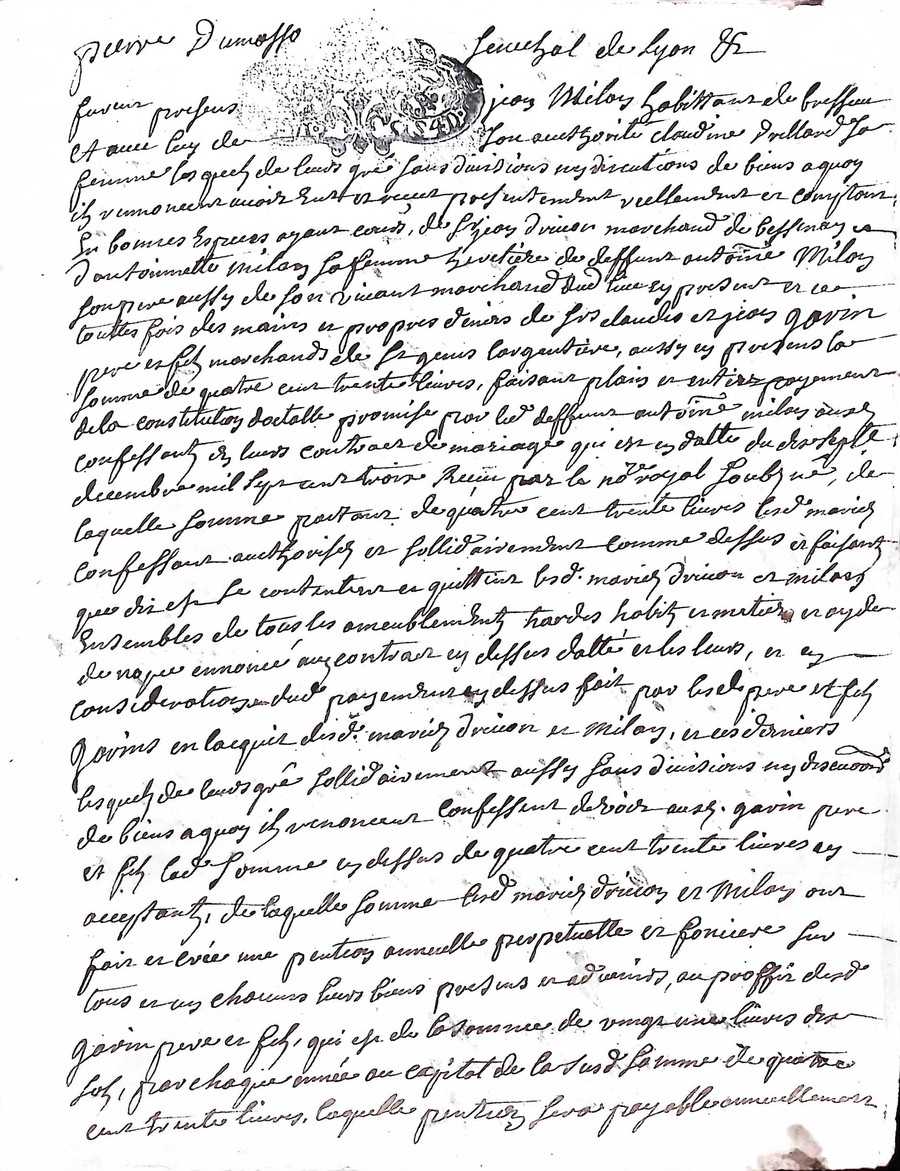 pierre Dumosso senechal de Lyon &
furent presens jean Milan habittant de bressieu
et avec luy de son authorité claudine drillard sa
femme lesquels de leurs gré sans divisions ny discutions de biens a quoy
ils renoncent avoir eut et receut presentement reellement et comptant
En bonnes Especes ayant cours, de Sr jean drivon marchand de bessenay et
d'antoinette Milan sa femme heretiere de deffunt antoine Milan
son pere aussy de son vivant marchand dud lieu cy present et ce
touttes fois des mains et propres deniers de Srs claude et jean gavin
pere et fils marchands de St genis l'argentiere, aussy cy presens la
somme de quatre cent trente livres, faisant plain et entier payement
de la constitution dotalle promise par led deffunt antoine milan auxd
confessants en leurs contract de mariage qui est en datte du dix sept
decembre mil sept cent trois Receu par le nore royal soubzné, de
laquelle somme partant de quatre cent trente livres lesd mariez
confessant authorisez et sollidairement comme dessus et faisant
que dit est se contentent et quittent lesd. mariez drivon et milan
Ensembles de tous les ameublements hardes habits et
de nopce ennoncé aux contract cy dessus datté et les leurs, et en
considerations dud payement cy dessus fait par lesd pere et fils
gavins en lacquit desd. mariez drivon et Milan, et ces derniers
lesquels de leurs gré sollidairement aussy sans divisions ny discutions
de biens a quoy ils renoncent confessent devoir auxd. gavin pere
et fils lad somme cy dessus de quatre cent trente livres cy
acceptants, de laquelle somme lesd mariez drivon et Milan ont
fait et créé une pention annuelle perpetuelle et fonciere sur
tous et un chacuns leurs biens presens et advenirs, au proffit desd
gavin pere et fils, qui est de la somme de vingt une livres dix
sols, par chaque année au capital de la susd somme de quatre
cent trente livres, laquelle pention sera payable annuellement